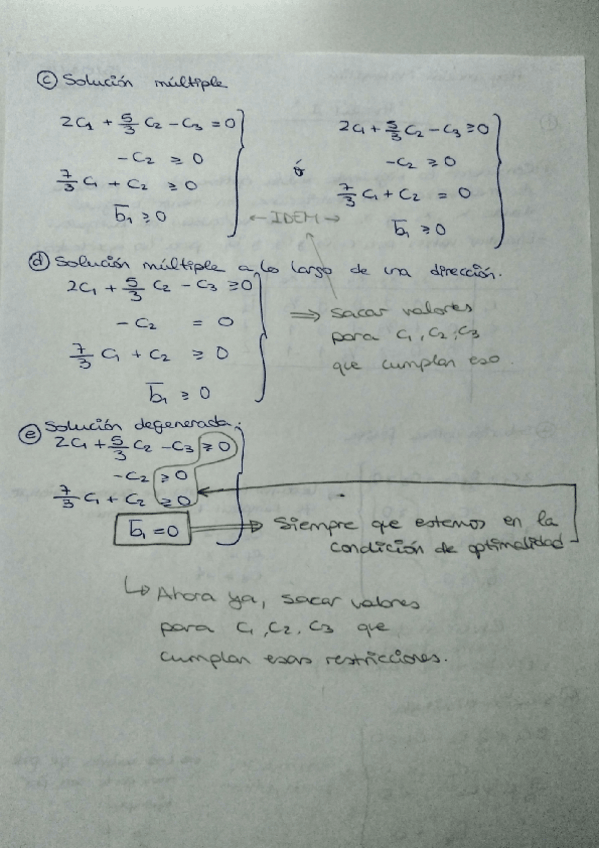 c) Solución múltiple
2C1 + 5/3 C2 - C3 = 0
- C2 ≥ 0
7/3 C1 + C2 ≥ 0
b̄1 ≥ 0
ó
2C1 + 5/3 C2 - C3 ≥ 0
- C2 ≥ 0
7/3 C1 + C2 = 0
b̄1 ≥ 0
← IDEM →
d) Solución múltiple a lo largo de una dirección.
2C1 + 5/3 C2 - C3 ≥ 0
- C2 = 0
7/3 C1 + C2 ≥ 0
b̄1 ≥ 0
⇒ Sacar valores
para C1, C2, C3
que cumplan eso
e) Solución degenerada:
2C1 + 5/3 C2 - C3 ≥ 0
- C2 ≥ 0
7/3 C1 + C2 ≥ 0
b̄1 = 0 ⇒ Siempre que estemos en la
condición de optimalidad
↳ Ahora ya, sacar valores
para C1, C2, C3 que
cumplan esas restricciones.